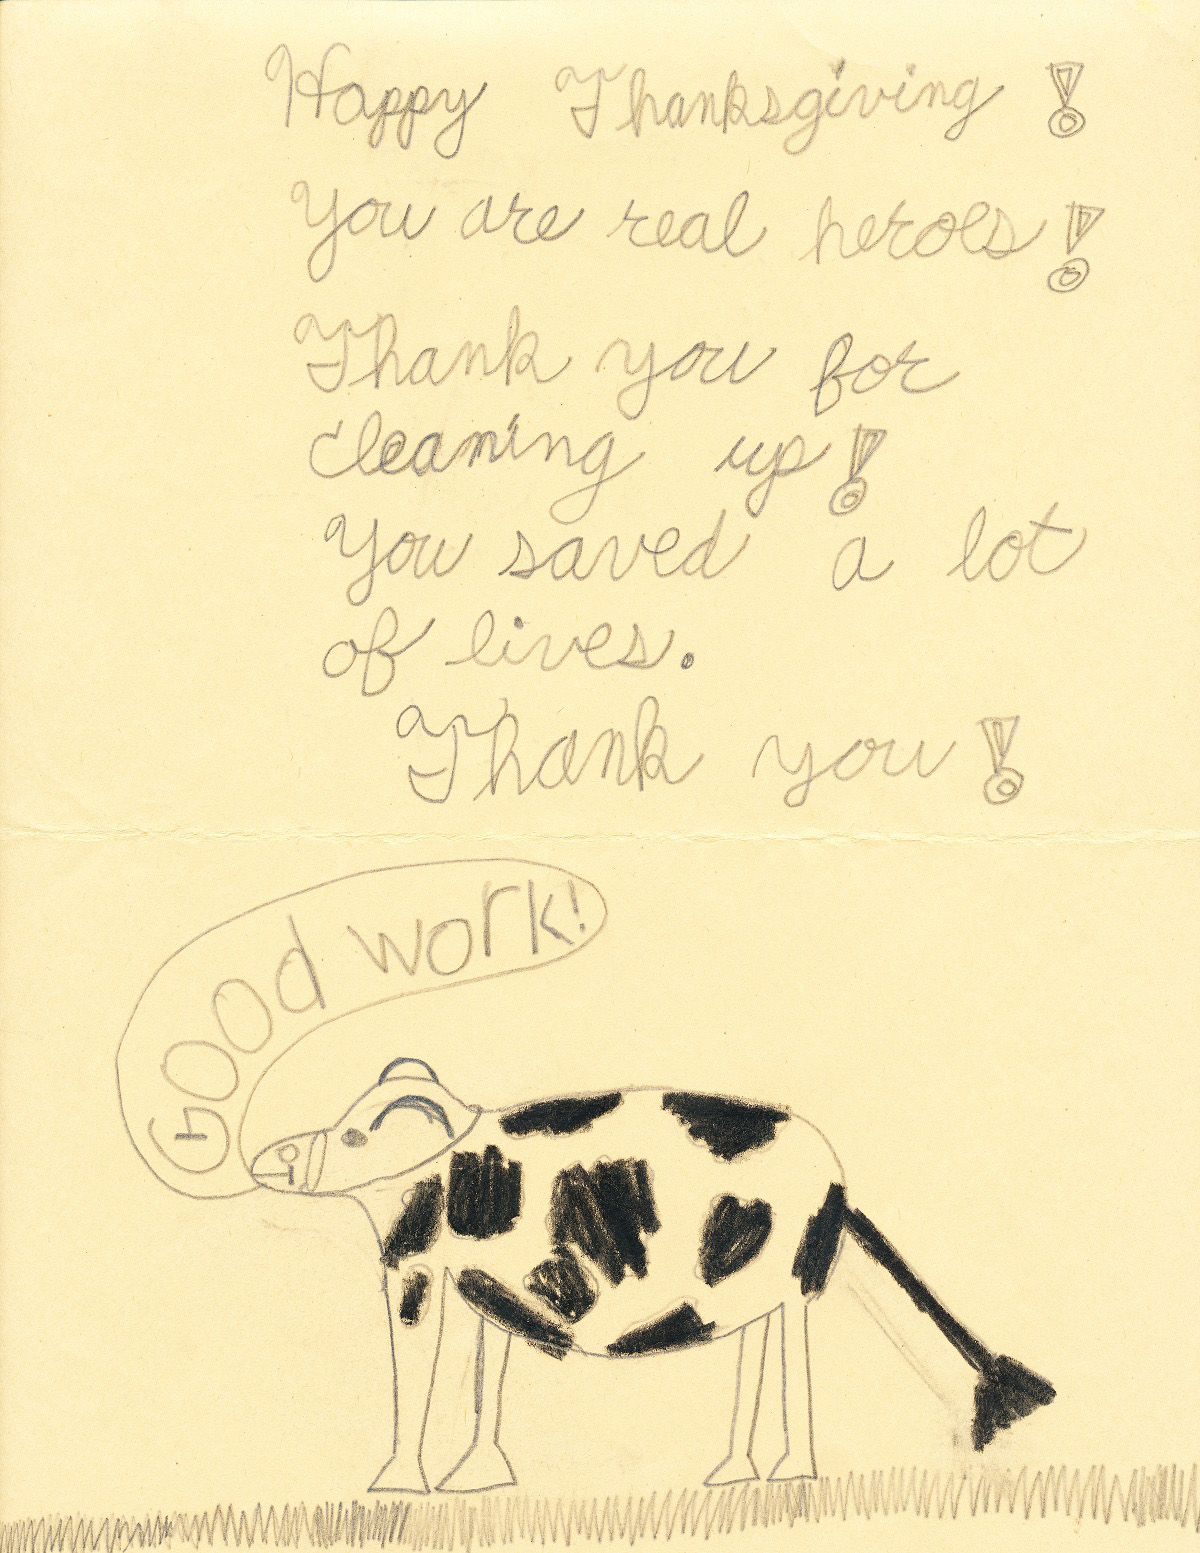 Happy Thanksgiving!
You are real heroes!
Thank you for
cleaning up!
You saved a lot
of lives.
Thank you!
Good work!